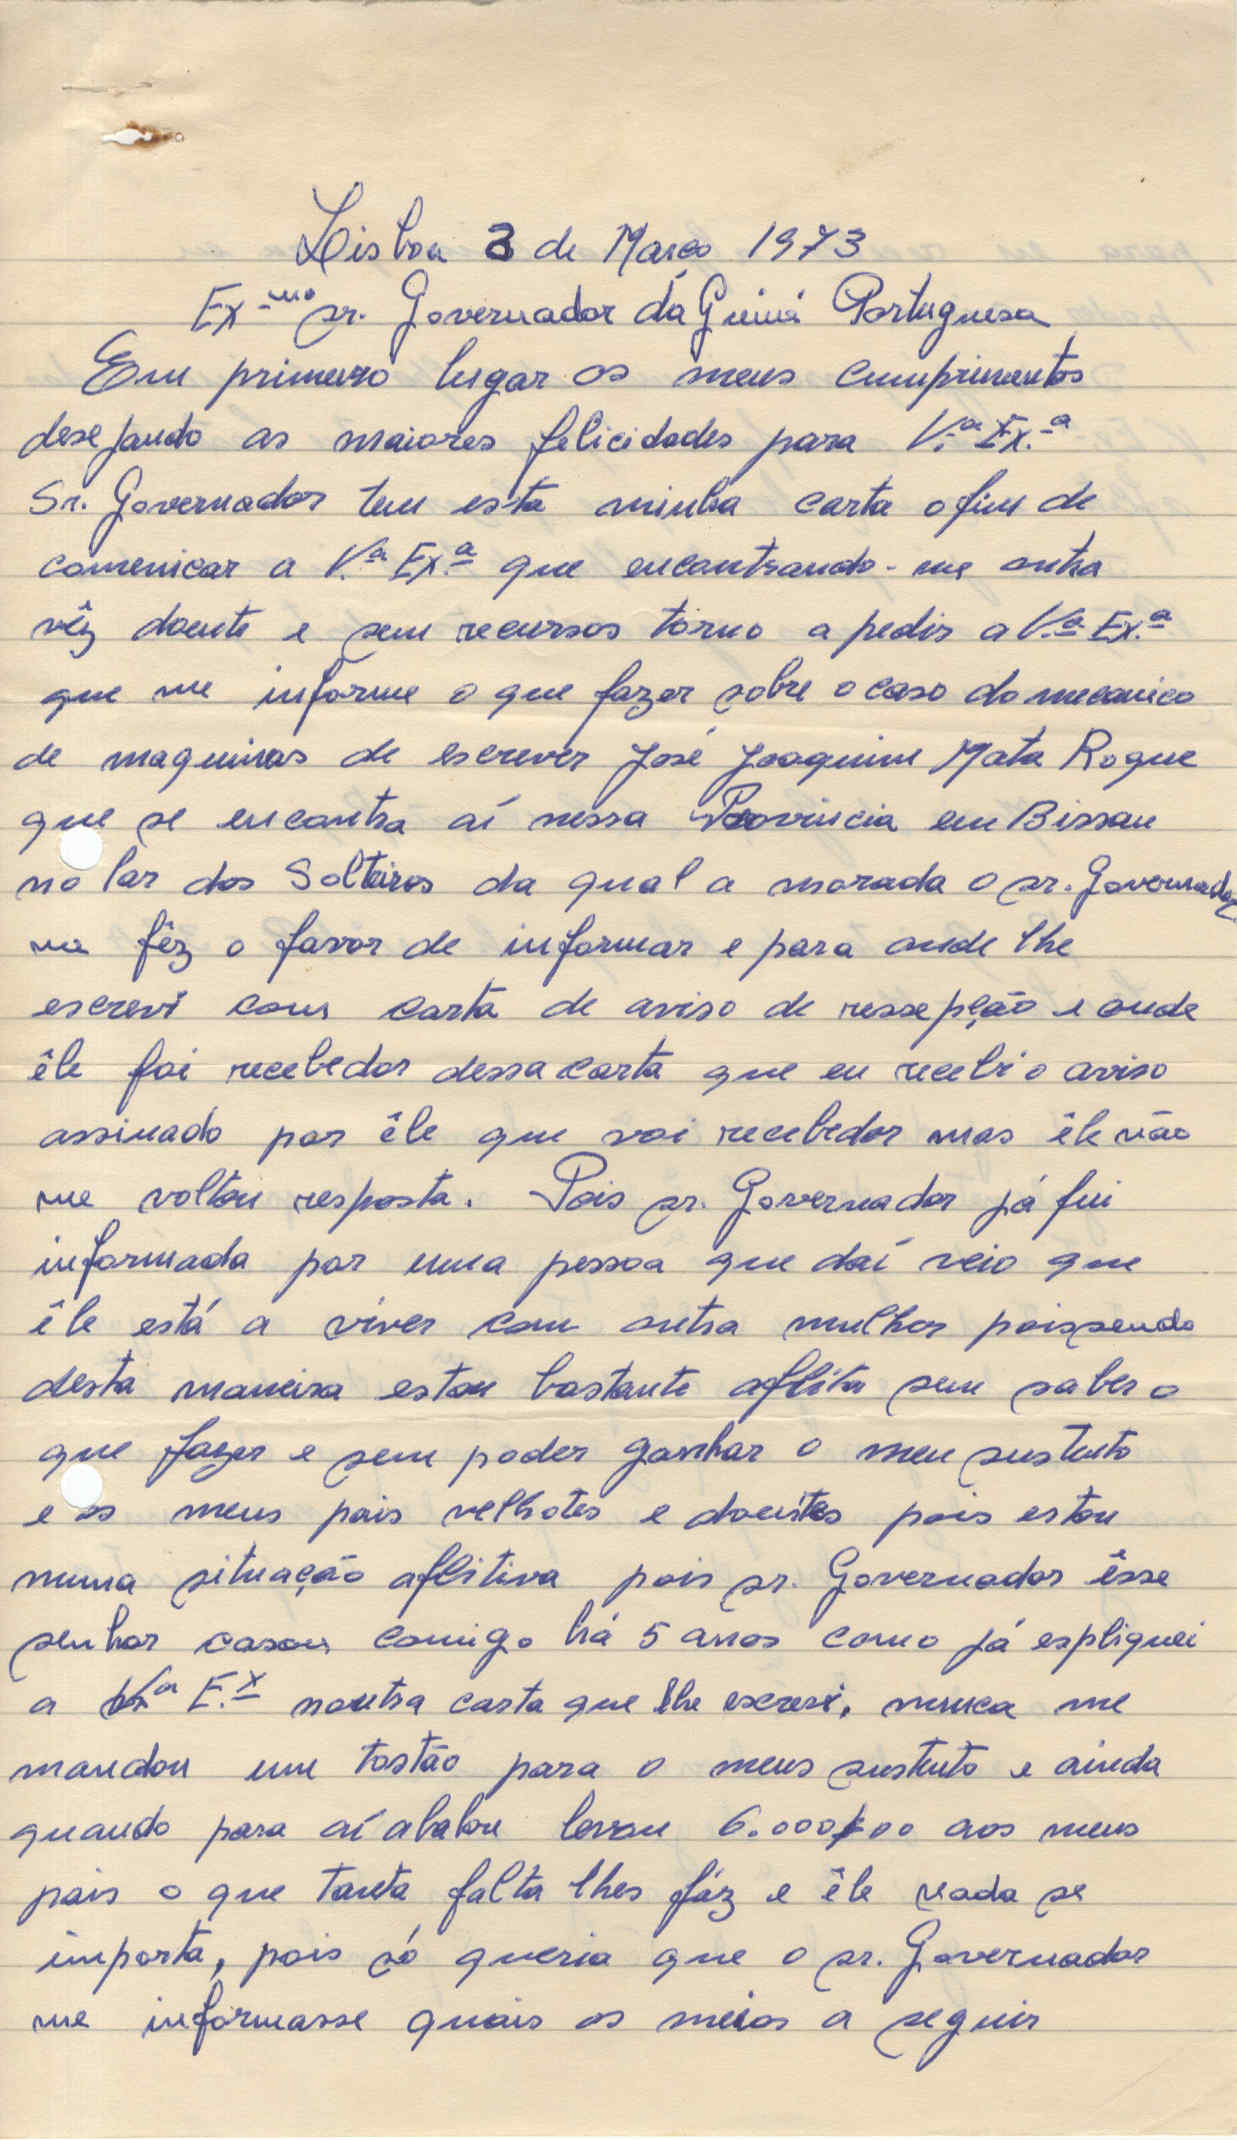 Lisboa 3 de Março 1973
Ex.mo sr. Governador da Guiné Portuguesa
Em primeiro lugar os meus cumprimentos
desejando as maiores felicidades para V.ª Ex.ª
Sr. Governador tem esta minha carta o fim de
comenicar a V.ª Ex.ª que encontrando-me outra
vêz doente e sem recursos torno a pedir a V.ª Ex.ª
que me informe o que fazer sobre o caso do mecanico
de maquinas de escrever José Joaquim Mata Roque
que se encontra aí nessa Provincia em Bissau
no lar dos Solteiros da qual a morada o sr. Governador
me fêz o favor de informar e para onde lhe
escrevi com carta de aviso de ressepção e onde
êle foi recebedor dessa carta que eu recebi o aviso
assinado por êle que voi recebedor mas êle não
me voltou resposta. Pois sr. Governador já fui
informada por uma pessoa que daí veio que
êle está a viver com outra mulher pois sendo
desta maneira estou bastante aflita sem saber o
que fazer e sem poder ganhar o meu sustento
e os meus pais velhotes e doentes pois estou
numa situação aflitiva pois sr. Governador êsse
senhor casou comigo há 5 anos como já espliquei
a V.ª E.x noutra carta que lhe escrevi, nunca me
mandou um tostão para o meus sustento e ainda
quando para aí abalou levou 6.000$00 aos meus
pais o que tanta falta lhes fáz e êle nada se
importa, pois só queria que o sr. Governador
me informasse quais os meios a seguir